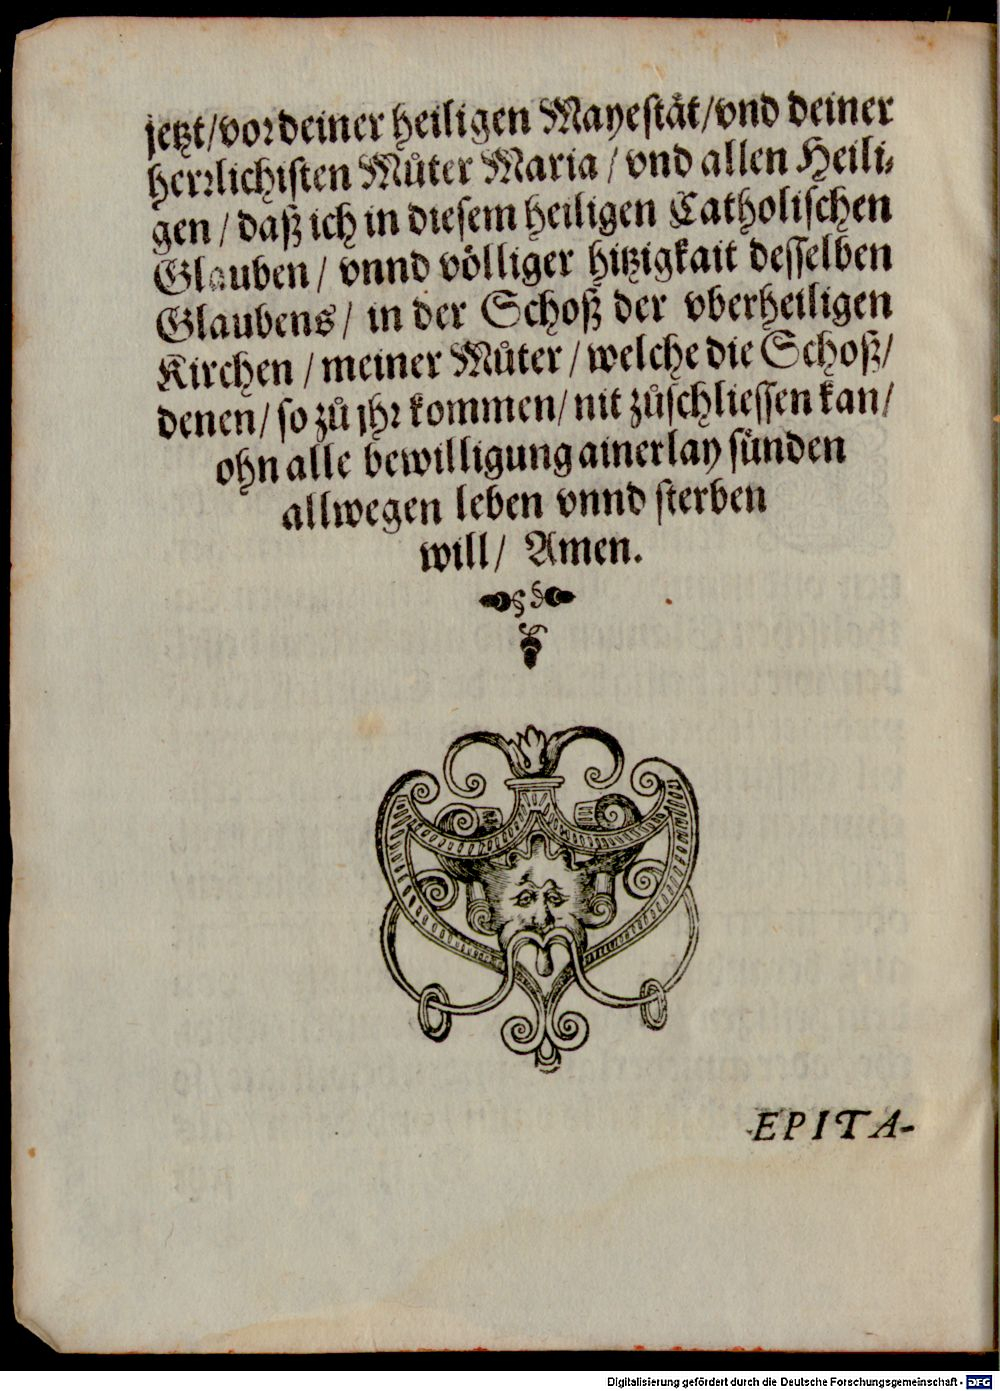 jetzt/vor deiner heiligen Mayestät/vnd deiner
herrlichisten Můter Maria / vnd allen Heili-
gen / daß ich in diesem heiligen Catholischen
Glauben / vnnd völliger hitzigkait desselben
Glaubens / in der Schoß der vberheiligen
Kirchen / meiner Můter / welche die Schoß/
denen/ so zů jhr kommen/ nit zůschliessen kan/
ohn alle bewilligung ainerlay sünden
allwegen leben vnnd sterben
will/ Amen.
EPITA-
Digitalisierung gefördert durch die Deutsche Forschungsgemeinschaft - DFG